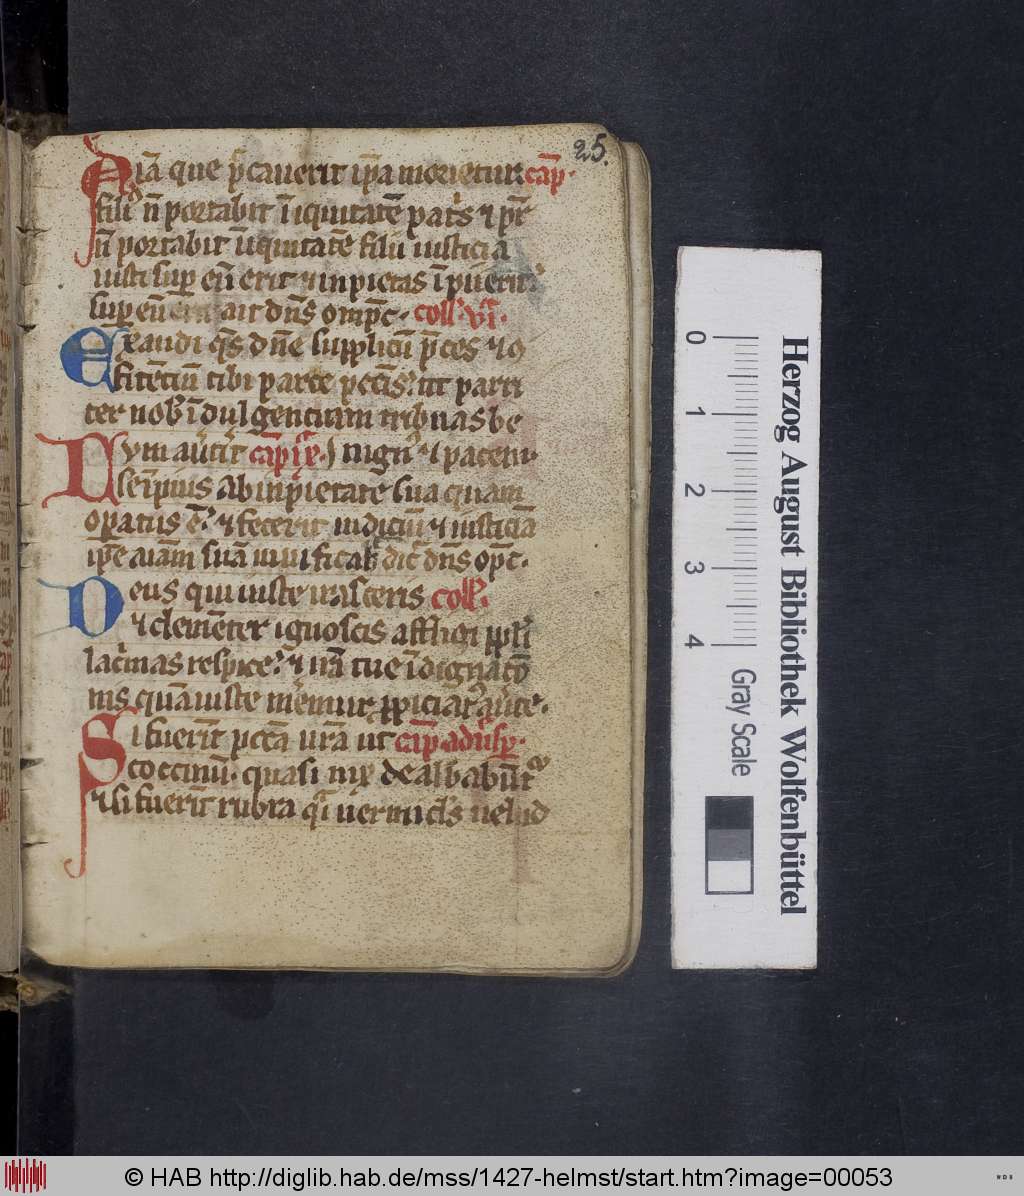 25.
Aīa que p̄cauerit ip̄a morietur: cap̄.
fili9 n̄ portabit īiquitatē patris ⁊ pr̄
n̄ portabit īiquitatē filii iusticia
iusti sup eū erit ⁊ inpietas īpii erit
sup eū ait dn̄s omp̄c. coll' vi.
Exaudi qs dn̄e supplicū p̄ces ⁊ ꝯ
fitētiū tibi parce pcc̄is: ut pari
ter nob̄ īdulgentiam tribuas be
Dum au̇t'it cap̄ ix. nign9 ⁊ pacem.
se īpius ab inpietate sua quam
opatus ē: ⁊ fecerit iudiciū ⁊ iusticiā
ip̄e aīam suā uiuificab dic̄ dn̄s op̄c.
Deus qui iuste irasceris coll'.
⁊ clemēter ignoscis afflicti ppl'i
lac'mas respice: ⁊ irā tue īdignac̄o
nis quā iuste mēmur ppiciat9 au̇te.
Si fuerīt pcc̄a ur̄a ut cap̄ ad usp.
coccinū. quasi nix dealbabūt᷑
⁊ si fuerīt rubra q̇ uermicl's uelud
0 1 2 3 4
Gray Scale
Herzog August Bibliothek Wolfenbüttel
© HAB http://diglib.hab.de/mss/1427-helmst/start.htm?image=00053